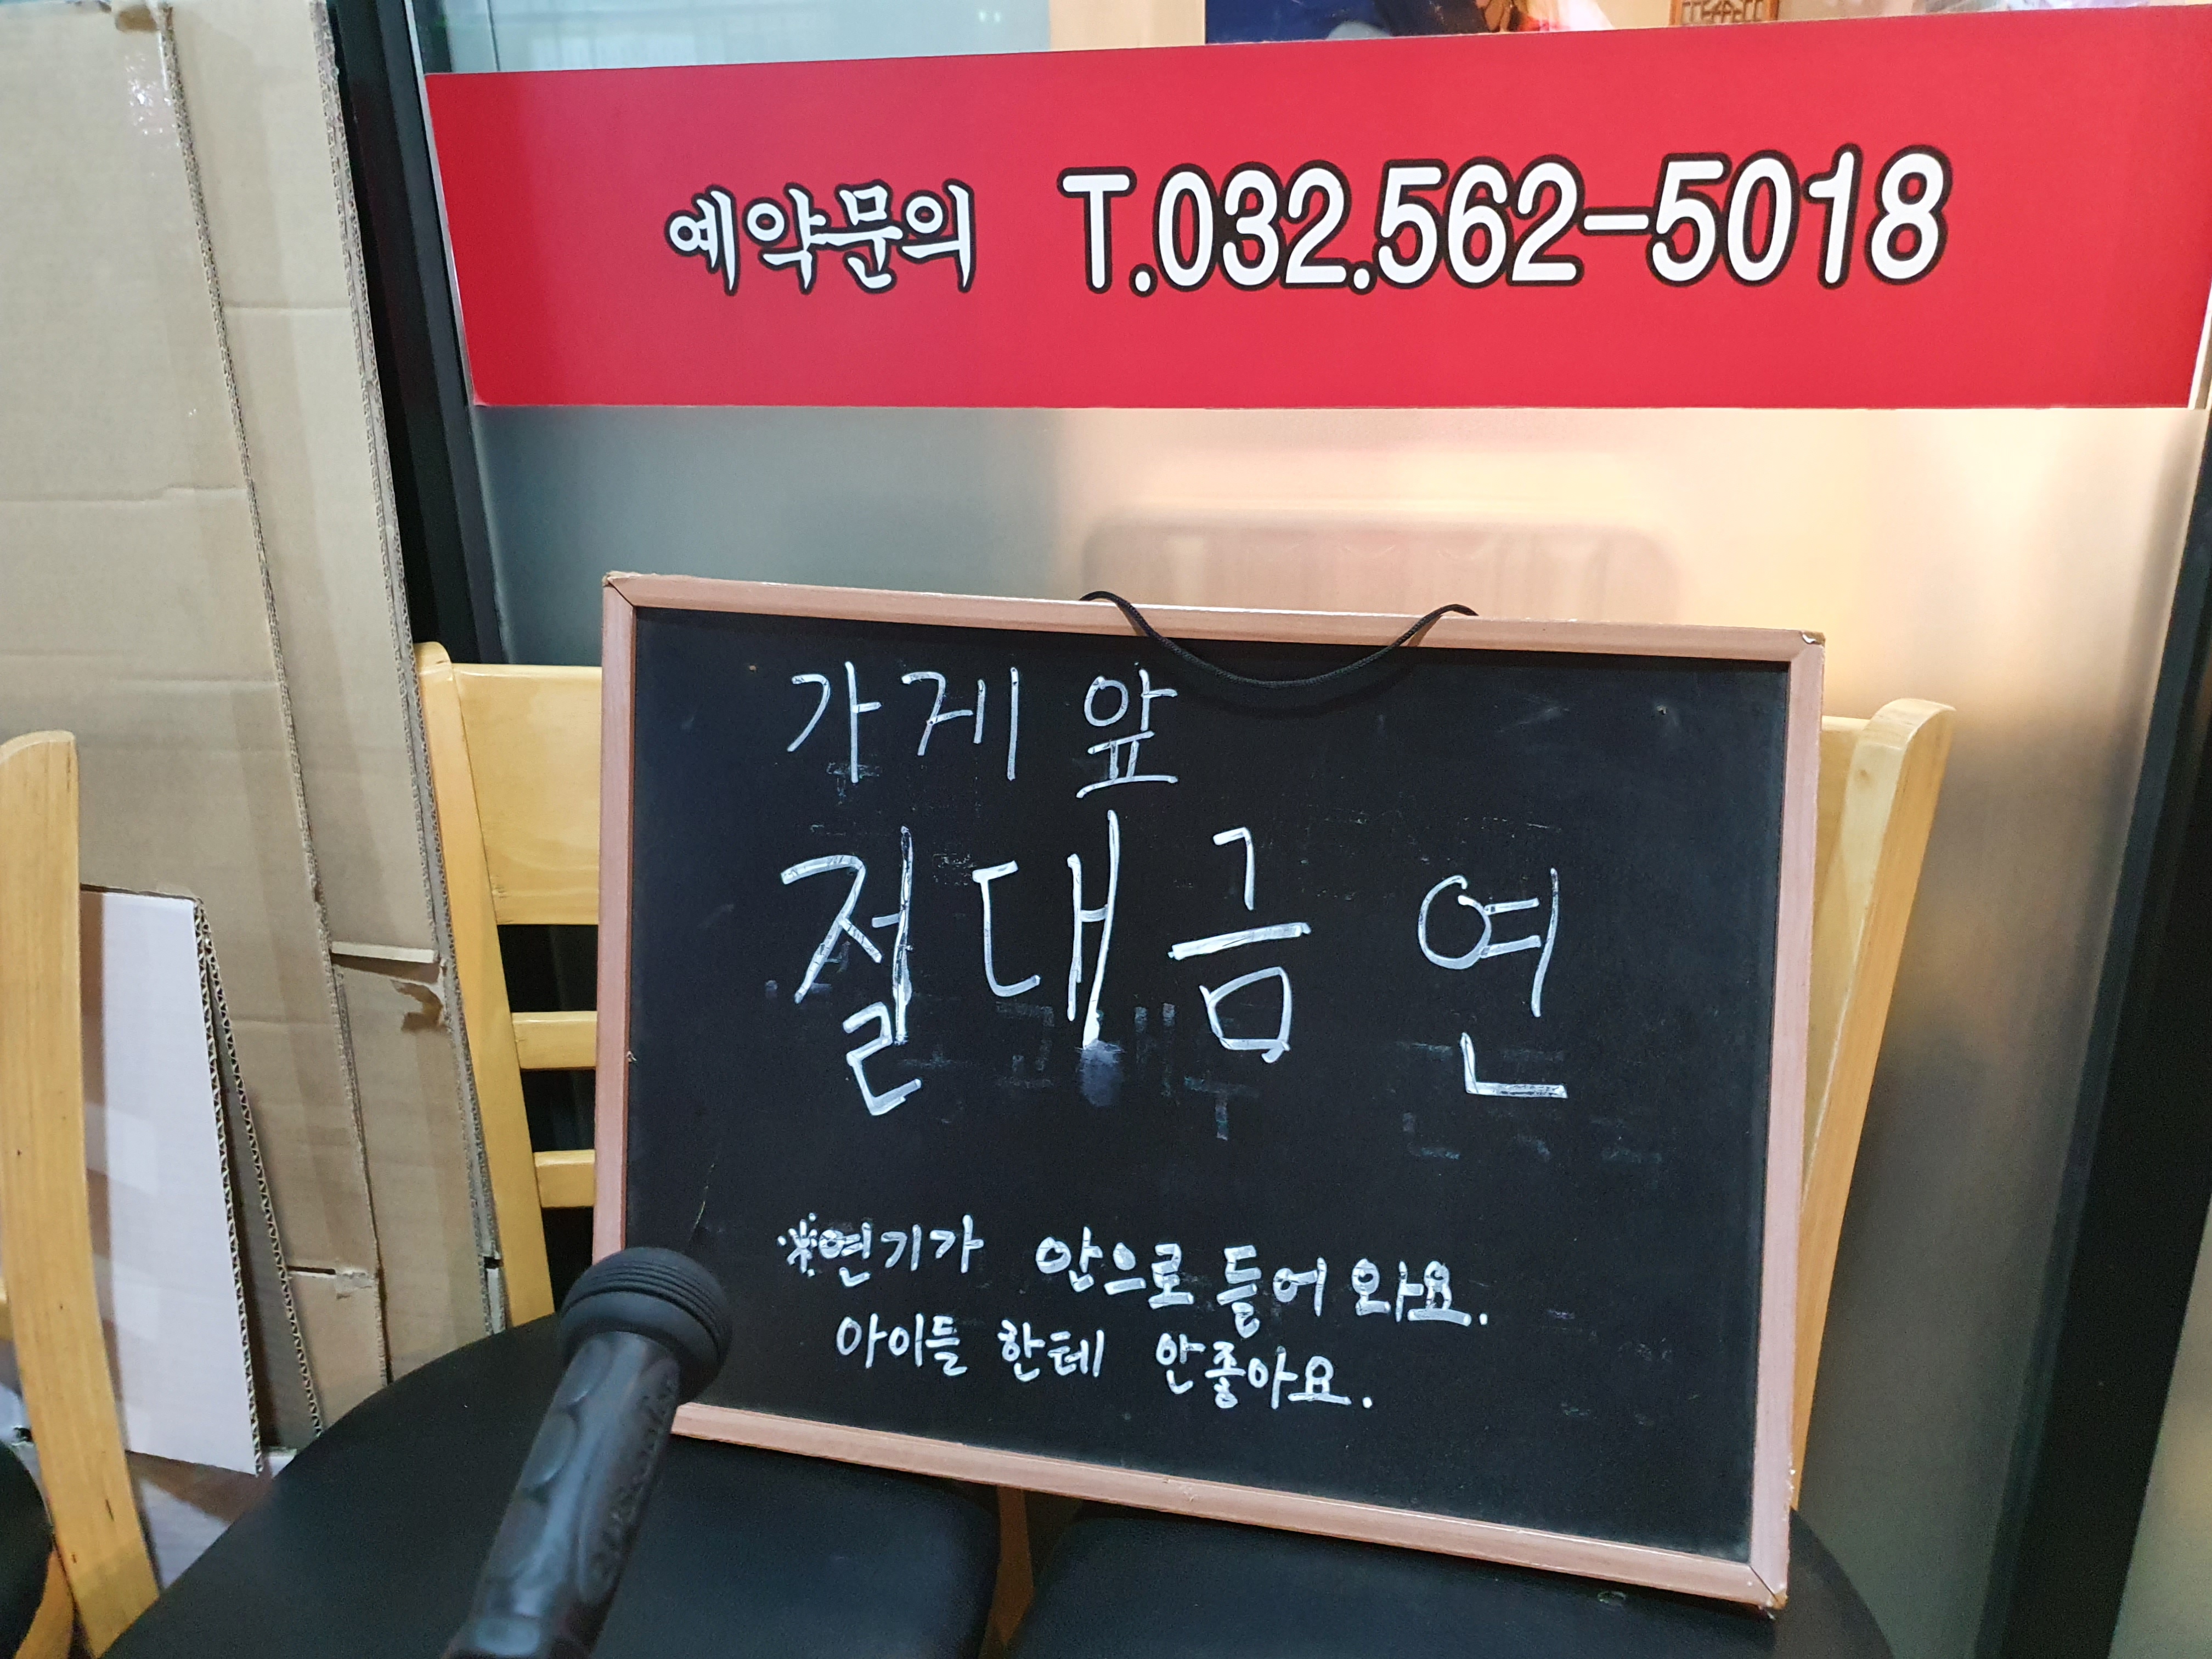 예약문의 T.032.562-5018
가게 앞
절대금연
※연기가 안으로 들어 와요.
아이들 한테 안좋아요.